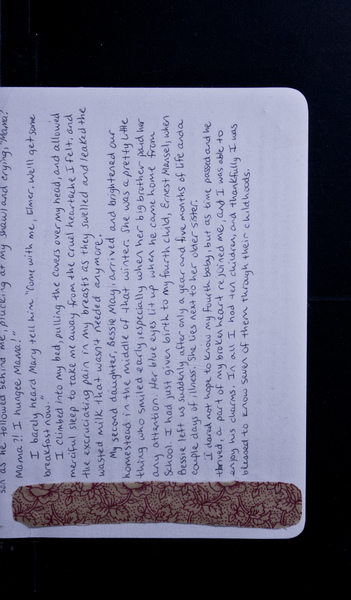 son as he followed behind me, placing at my shawl and crying, "Mama?
Mama?! I hungee Mama!"
I barely heard Mary tell him "Come with me, Elmer. We'll get some
breakfast now."
I climbed into my bed, pulling the covers over my head, and allowed
merciful sleep to take me away from the cruel heartache I felt, and
the excruciating pain in my breasts as they swelled and leaked the
wasted milk that wasn't needed anymore.
My second daughter, Bessie May, arrived and brightened our
homestead in the middle of that winter. She was a pretty little
thing who smiled early, especially when her big brother paid her
any attention. Her blue eyes lit up when he came home from
school. I had just given birth to my fourth child, Ernest Mansel, when
Bessie left us suddenly after only a year and five months of life and a
couple days of illness. She lies next to her older sister.
I dared not hope to know my fourth baby, but as time passed and he
thrived, a part of my broken heart rejoined me, and I was able to
enjoy his charms. In all I had ten children, and thankfully I was
blessed to know seven of them through their childhoods.